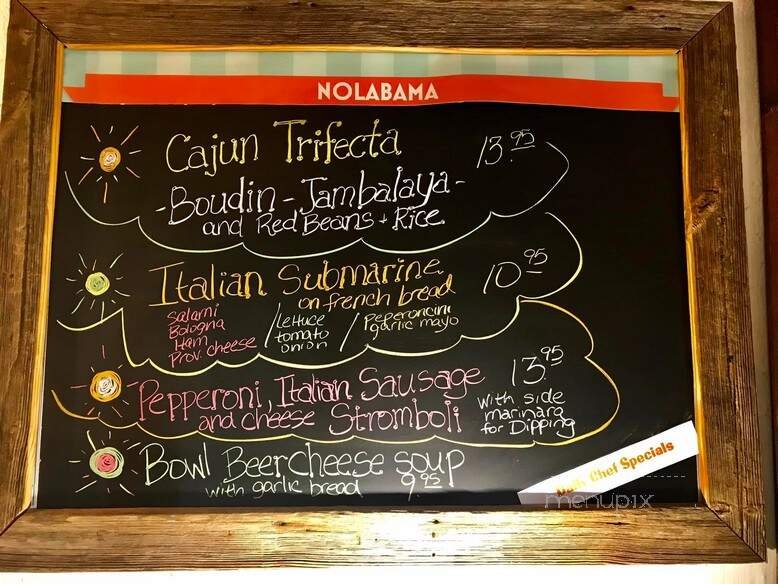 NOLABAMA
Cajun Trifecta 13.95
-Boudin-Jambalaya-
and Red Beans + Rice
Italian Submarine 10 95
on french bread
Salami
Bologna
Ham
Prov. cheese
/Lettuce
tomato
onion
/Peperoncini
garlic mayo
Pepperoni, Italian Sausage 13.95
and cheese Stromboli
with side
marinara
for Dipping
Bowl Beercheese soup
with garlic bread 9.95
Chef Specials
menupix